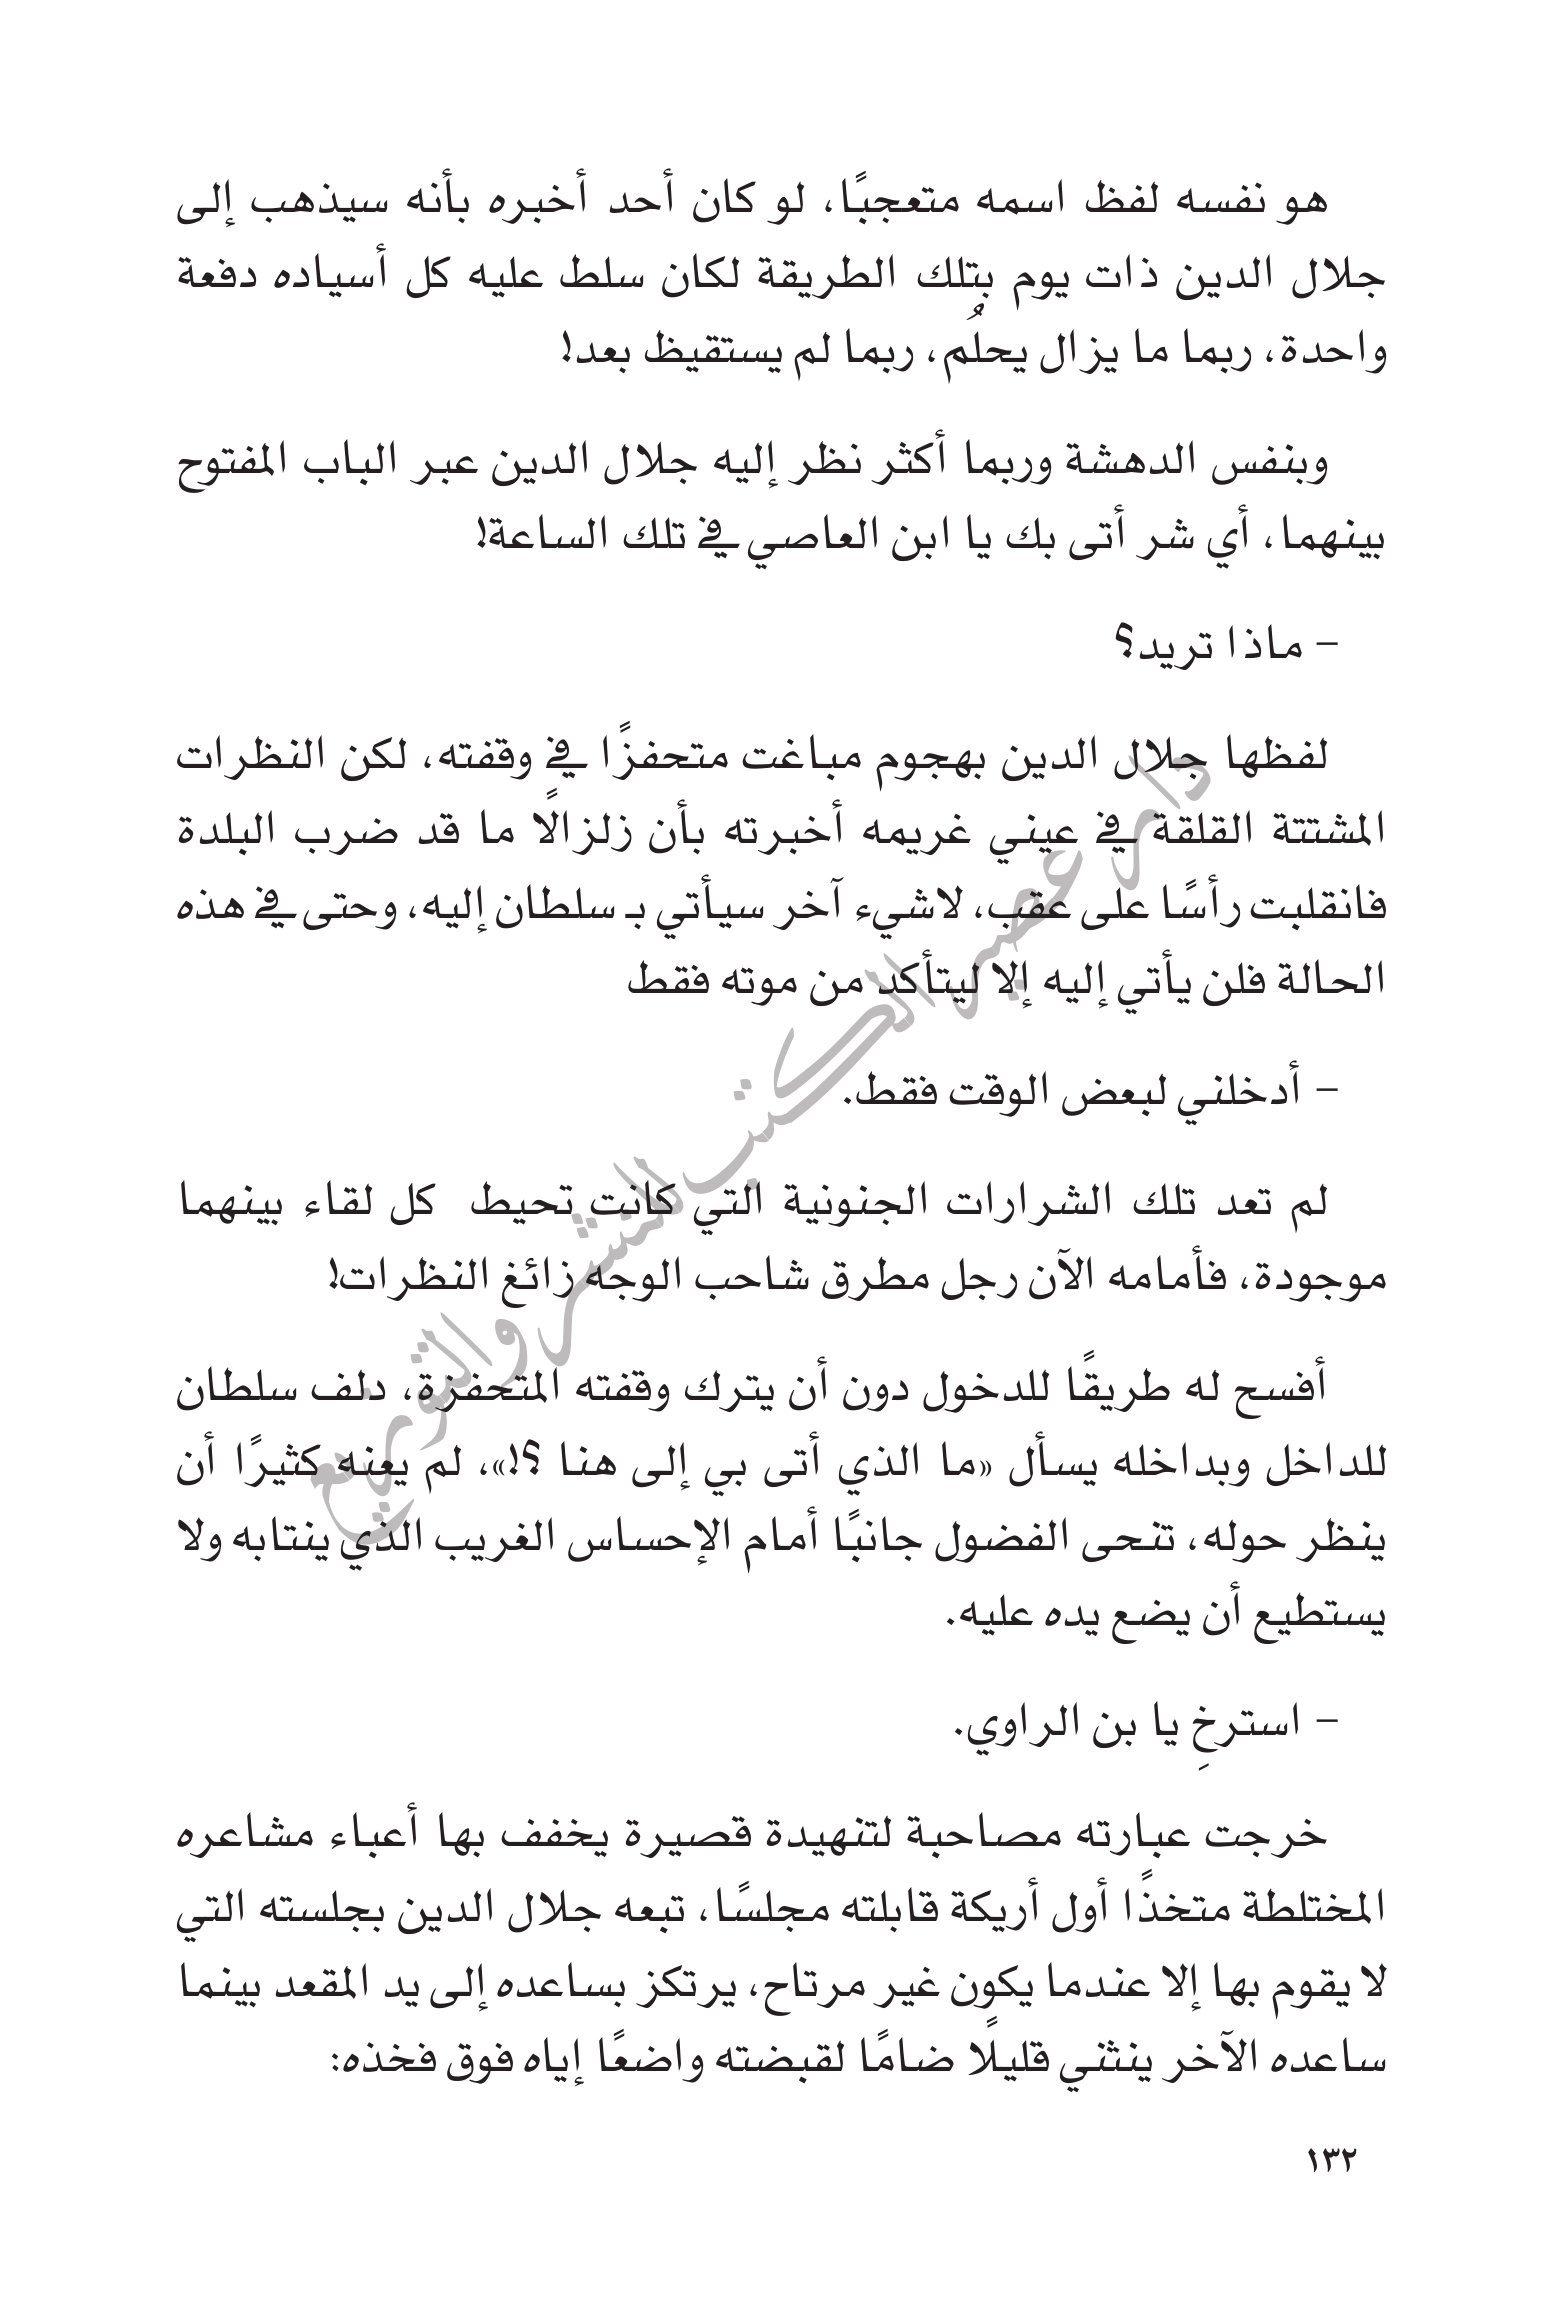 هو نفسه لفظ اسمه متعجبًا، لو كان أحد أخبره بأنه سيذهب إلى
جلال الدين ذات يوم بتلك الطريقة لكان سلط عليه كل أسياده دفعة
واحدة، ربما ما يزال يحلُم، ربما لم يستقيظ بعد!
وبنفس الدهشة وربما أكثر نظر إليه جلال الدين عبر الباب المفتوح
بينهما، أي شر أتى بك يا ابن العاصي في تلك الساعة!
– ماذا تريد؟
لفظها جلال الدين بهجوم مباغت متحفزًا في وقفته، لكن النظرات
المشتتة القلقة في عيني غريمه أخبرته بأن زلزالًا ما قد ضرب البلدة
فانقلبت رأسًا على عقب، لاشيء آخر سيأتي بـ سلطان إليه، وحتى في هذه
الحالة فلن يأتي إليه إلا ليتأكد من موته فقط
– أدخلني لبعض الوقت فقط.
لم تعد تلك الشرارات الجنونية التي كانت تحيط كل لقاء بينهما
موجودة، فأمامه الآن رجل مطرق شاحب الوجه زائغ النظرات!
أفسح له طريقًا للدخول دون أن يترك وقفته المتحفزة، دلف سلطان
للداخل وبداخله يسأل «ما الذي أتى بي إلى هنا ؟!»، لم يعنه كثيرًا أن
ينظر حوله، تنحى الفضول جانبًا أمام الإحساس الغريب الذي ينتابه ولا
يستطيع أن يضع يده عليه.
– استرخِ يا بن الراوي.
خرجت عبارته مصاحبة لتنهيدة قصيرة يخفف بها أعباء مشاعره
المختلطة متخذًا أول أريكة قابلته مجلسًا، تبعه جلال الدين بجلسته التي
لا يقوم بها إلا عندما يكون غير مرتاح، يرتكز بساعده إلى يد المقعد بينما
ساعده الآخر ينثني قليلًا ضامًا لقبضته واضعًا إياه فوق فخذه:
١٣٢
دار عصير الكتب للنشر والتوزيع